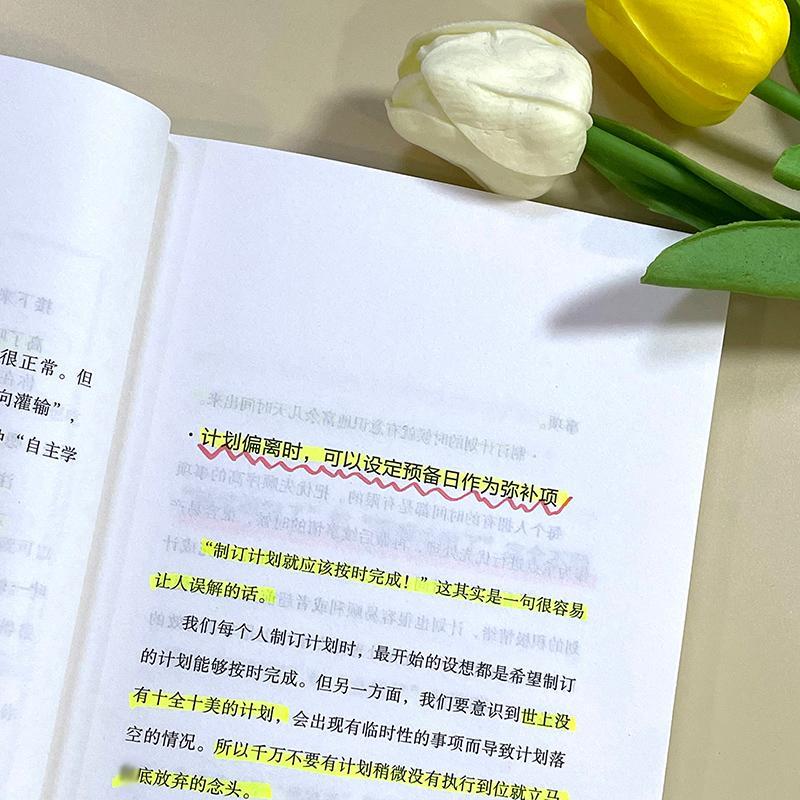 很正常。但
向灌输”，
“自主学
· 计划偏离时，可以设定预备日作为弥补项
“制订计划就应该按时完成！”这其实是一句很容易
让人误解的话。
我们每个人制订计划时，最开始的设想都是希望制订
的计划能够按时完成。但另一方面，我们要意识到世上没
有十全十美的计划，会出现有临时性的事项而导致计划落
空的情况。所以千万不要有计划稍微没有执行到位就立马
底放弃的念头。